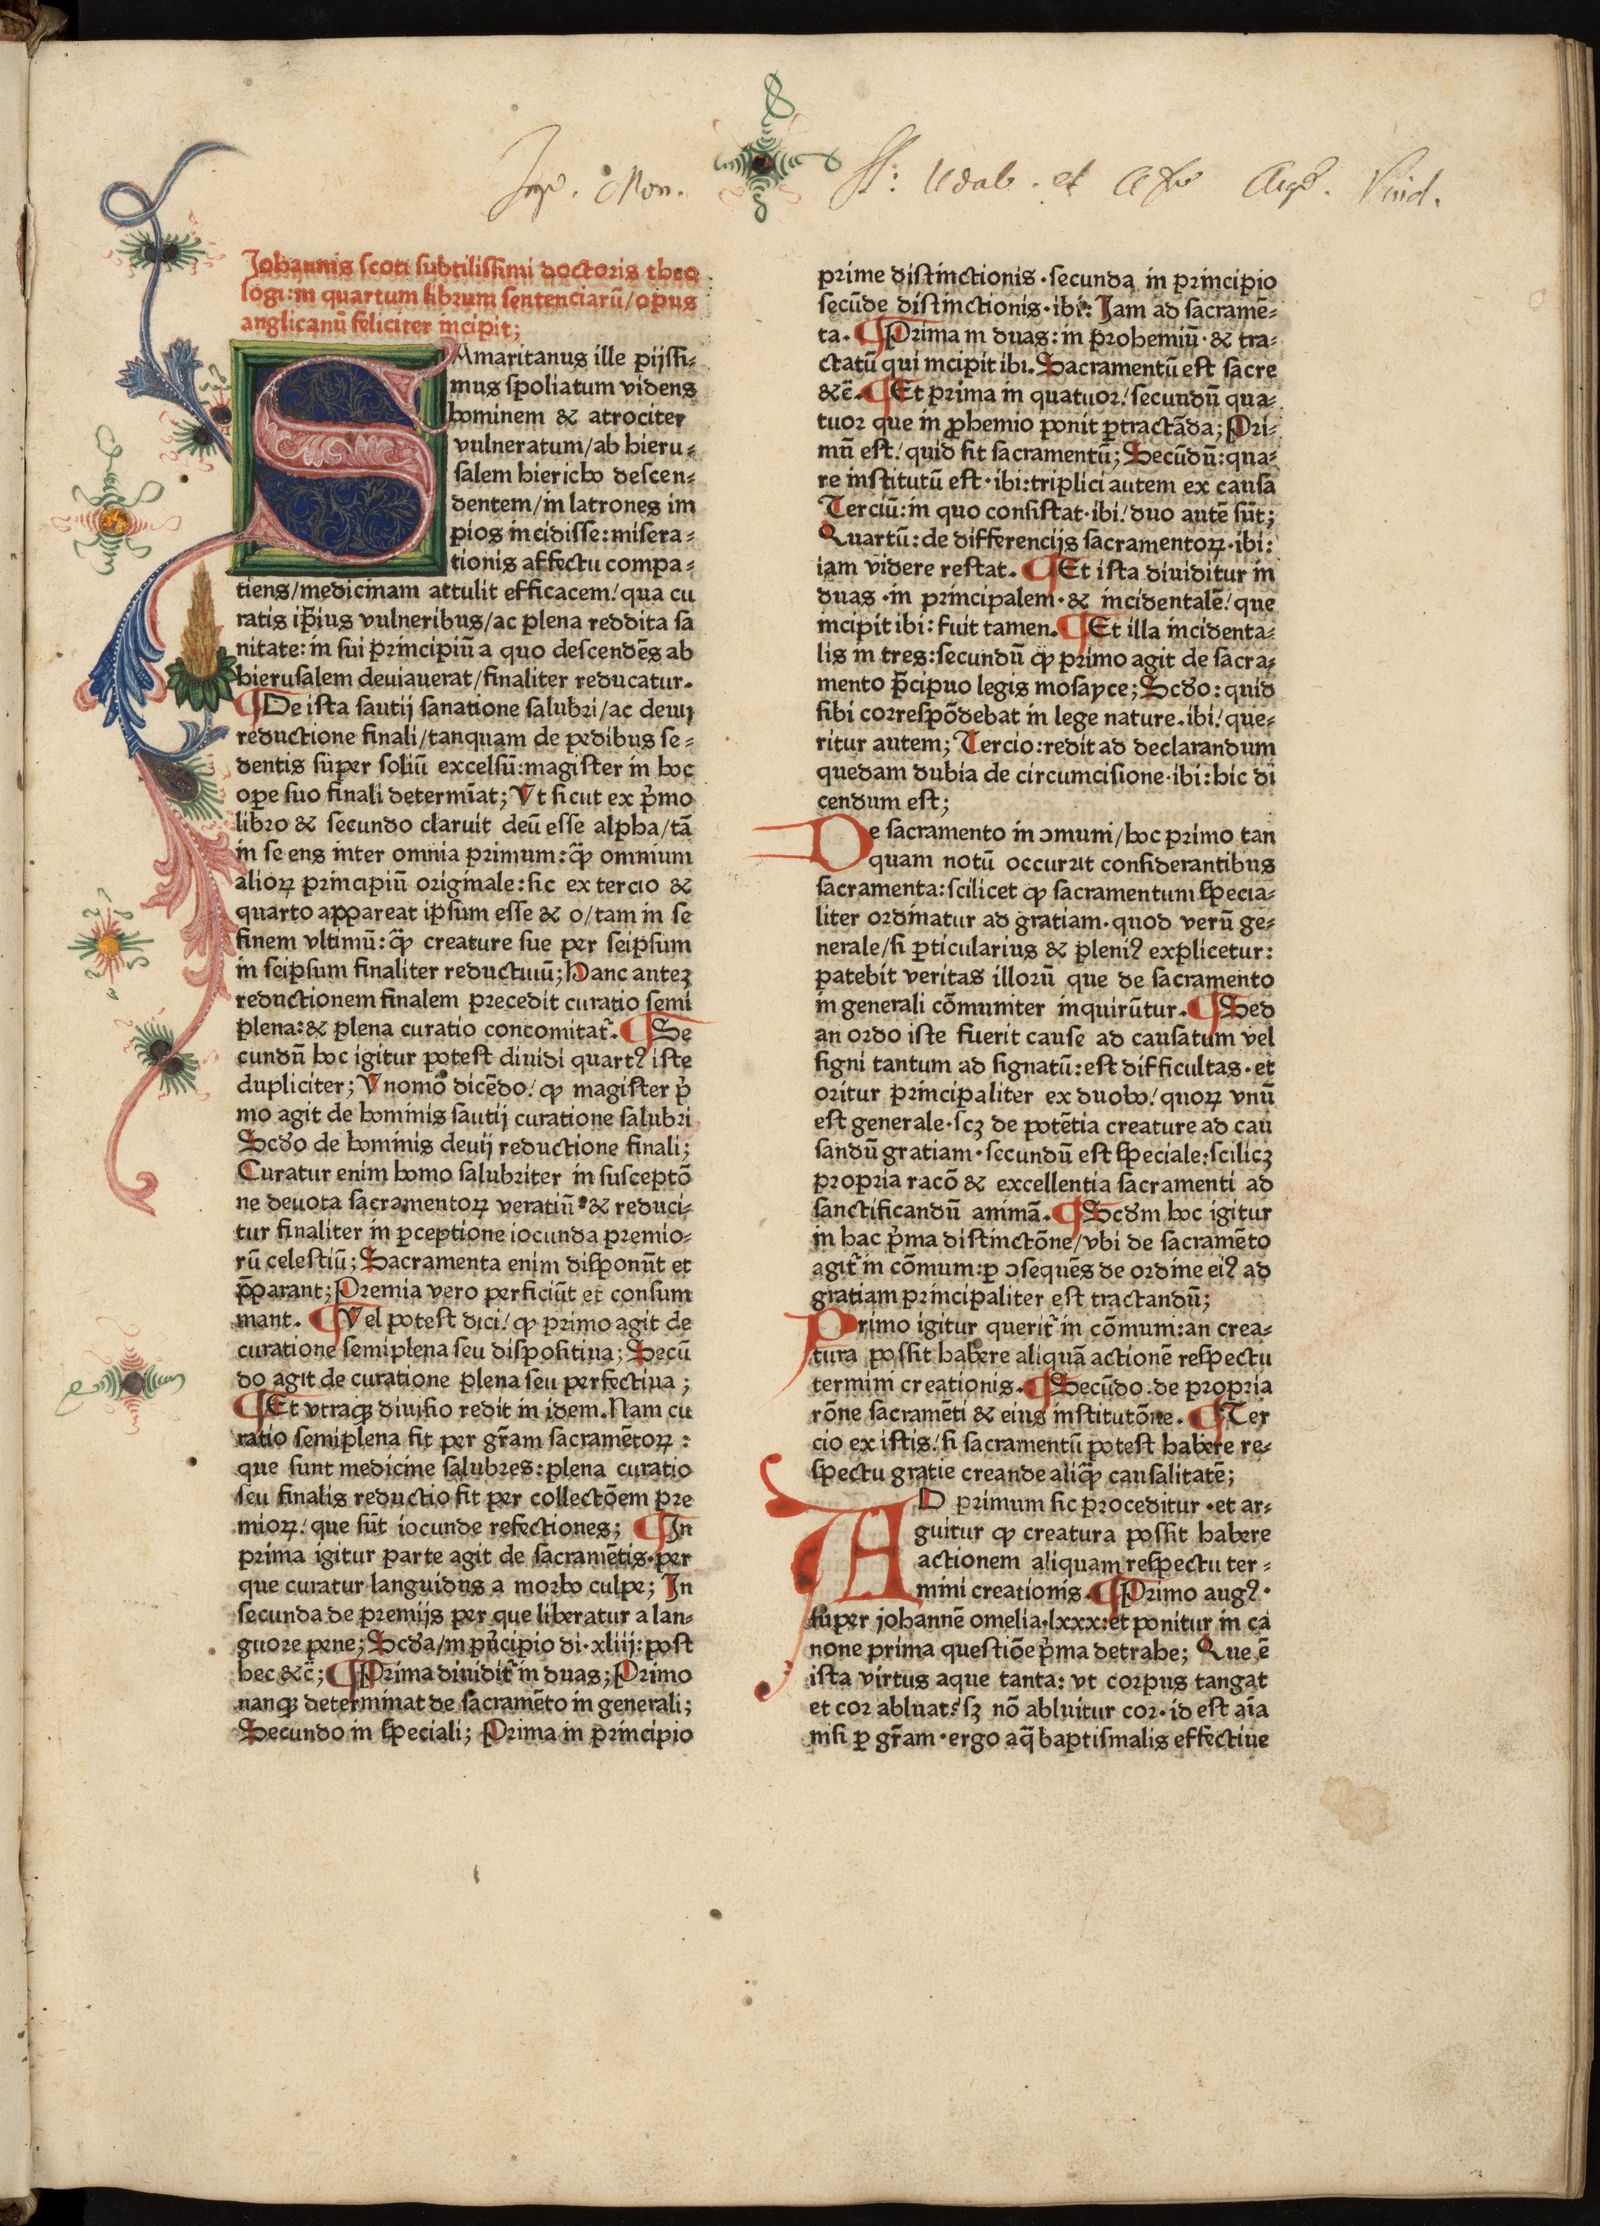 SS: Udal. et Afr
Johannis scoti subtilissimi doctoris theo
logi: in quartum librum sentenciarū/opus
anglicanū feliciter incipit;
SAmaritanus ille pijssi⸗
mus spoliatum videns
hominem & atrociter
vulneratum/ab hieru⸗
salem hiericho descen⸗
dentem/in latrones im
pios incidisse: misera⸗
tionis affectu compa⸗
tiens/medicinam attulit efficacem/ qua cu
ratis ip̄ius vulneribus/ac plena reddita sa
nitate: in sui principiū a quo descendēs ab
hierusalem deuiauerat/finaliter reducatur.
¶ De ista sautij sanatione salubri/ac deuij
reductione finali/tanquam de pedibus se⸗
dentis super soliū excelsū: magister in hoc
ope suo finali determīat; Vt sicut ex p̄mo
libro & secundo claruit deū esse alpha/tā
in se ens inter omnia primum: q̄ꝫ omnium
alioꝝ principiū originale: sic ex tercio &
quarto appareat ipsum esse & o/tam in se
finem vltimū: q̄ꝫ creature sue per seipsum
in seipsum finaliter reductiuū; Hanc auteꝫ
reductionem finalem precedit curatio semi
plena: & plena curatio concomitat᷑. ¶ Se
cundū hoc igitur potest diuidi quartꝰ iste
dupliciter; Vnomō dicēdo/ ꝙ magister p̄
mo agit de hominis sautij curatione salubri
Scd̄o de hominis deuij reductione finali;
Curatur enim homo salubriter in susceptō
ne deuota sacramentoꝝ veratiū & reduci⸗
tur finaliter in ꝑceptione iocunda premio⸗
rū celestiū; Sacramenta enim disponūt et
p̄parant; Premia vero perficiūt et consum
mant. ¶ Vel potest dici/ ꝙ primo agit de
curatione semiplena seu dispositiua; Secū
do agit de curatione plena seu perfectiua;
¶ Et vtraqꝫ diuisio redit in idem. Nam cu
ratio semiplena fit per gr̄am sacramētoꝝ:
que sunt medicine salubres: plena curatio
seu finalis reductio fit per collectōem pre
mioꝝ/ que sūt iocunde refectiones; ¶ In
prima igitur parte agit de sacramētis· per
que curatur languidus a morbo culpe; In
secunda de premijs per que liberatur a lan⸗
guore pene; Scd̄a/in pn̄cipio di· xliij: post
hec &c̄; ¶ Prima diuidit᷑ in duas; Primo
nanqꝫ determinat de sacramēto in generali;
Secundo in speciali; Prima in principio
prime distinctionis· secunda in principio
secūde distinctionis· ibi: Jam ad sacramē⸗
ta. ¶ Prima in duas: in prohemiū· & tra⸗
ctatū qui incipit ibi. Sacramentū est sacre
&c̄. ¶ Et prima in quatuor/ secundū qua⸗
tuor que in ꝓhemio ponit ꝑtractāda; Pri⸗
mū est/ quid sit sacramentū; Secūdū: qua⸗
re institutū est· ibi: triplici autem ex causa
Terciū: in quo consistat· ibi/ duo autē sūt;
Quartū: de differencijs sacramentoꝝ· ibi:
iam videre restat. ¶ Et ista diuiditur in
duas· in principalem· & incidentalē/ que
incipit ibi: fuit tamen. ¶ Et illa incidenta⸗
lis in tres: secundū ꝙ primo agit de sacra⸗
mento p̄cipuo legis mosayce; Scd̄o: quid
sibi correspōdebat in lege nature. ibi/ que⸗
ritur autem; Tercio: redit ad declarandum
quedam dubia de circumcisione· ibi: hic di
cendum est;
De sacramento in ꝯmuni/hoc primo tan
quam notū occurrit considerantibus
sacramenta: scilicet ꝙ sacramentum specia⸗
liter ordinatur ad gratiam· quod verū ge⸗
nerale/si ꝑticularius & pleniꝰ explicetur:
patebit veritas illorū que de sacramento
in generali cōmuniter inquirūtur. ¶ Sed
an ordo iste fuerit cause ad causatum vel
signi tantum ad signatū: est difficultas· et
oritur principaliter ex duobꝰ/ quoꝝ vnū
est generale· scꝫ de potētia creature ad cau
sandū gratiam· secundū est speciale: scilicꝫ
propria racō & excellentia sacramenti ad
sanctificandū animā. ¶ Scd̄m hoc igitur
in hac p̄ma distinctōne/vbi de sacramēto
agit᷑ in cōmuni: ꝑ ꝯsequēs de ordine eiꝰ ad
gratiam principaliter est tractandū;
Primo igitur querit᷑ in cōmuni: an crea⸗
tura possit habere aliquā actionē respectu
termini creationis. ¶ Secūdo· de propria
rōne sacramēti & eius institutōne. ¶ Ter
cio ex istis/ si sacramentū potest habere re⸗
spectu gratie creande aliq̄ꝫ causalitatē;
AD primum sic proceditur· et ar⸗
guitur ꝙ creatura possit habere
actionem aliquam respectu ter⸗
mini creationis. ¶ Primo augꝰ·
super johannē omelia· lxxx: et ponitur in ca
none prima questiōe p̄ma detrahe; Que ē
ista virtus aque tanta: vt corpus tangat
et cor abluat: sꝫ nō abluitur cor· id est aīa
nisi ꝑ gr̄am· ergo aq̄ baptismalis effectiue